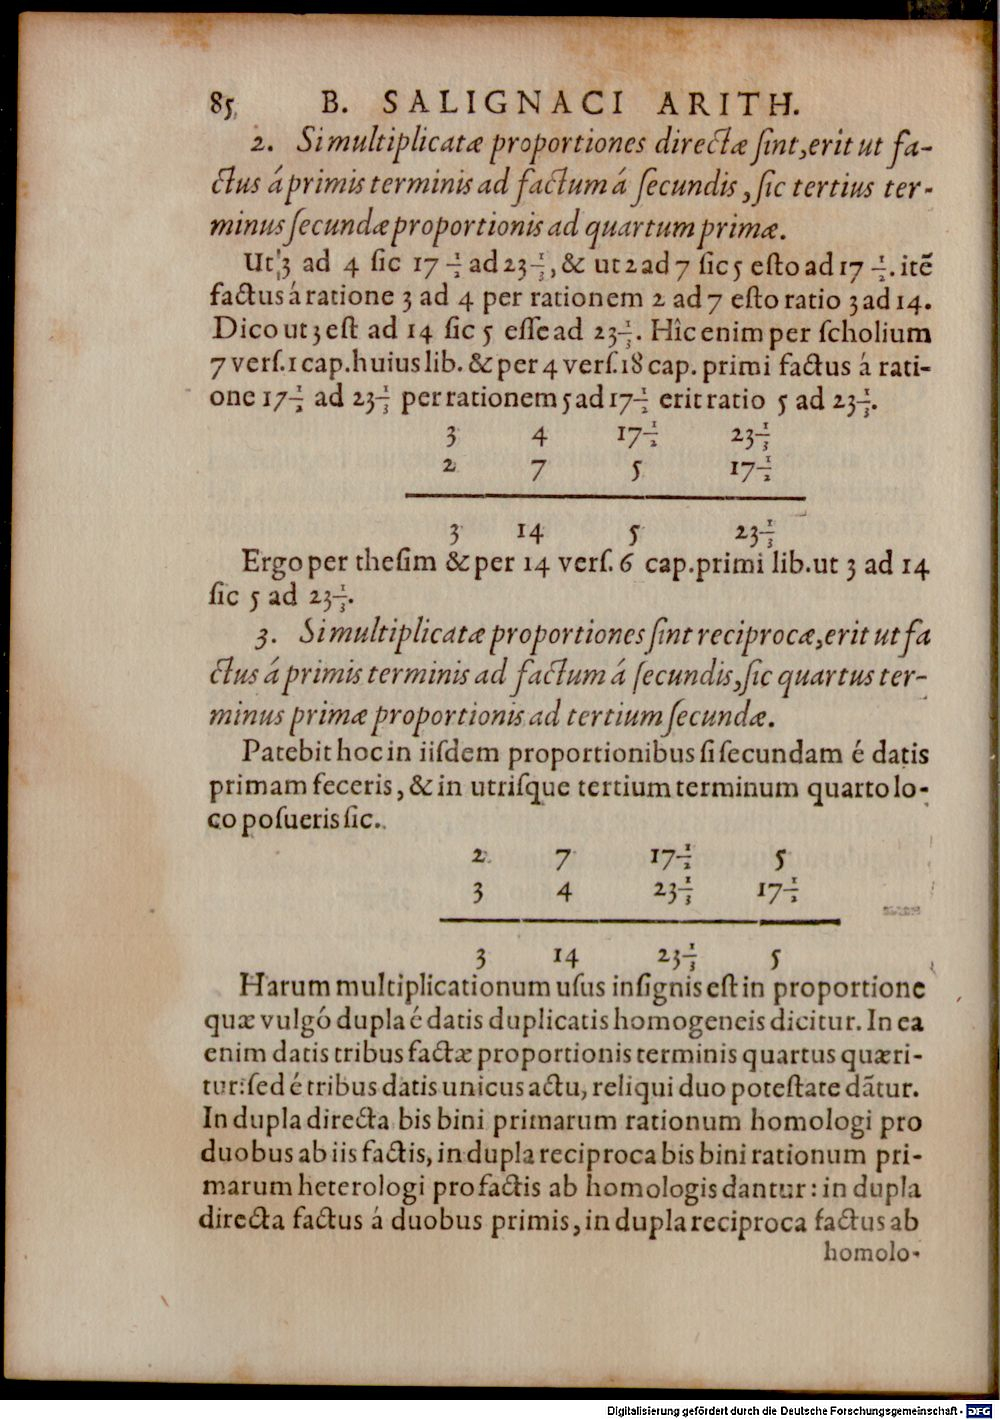 85 B. SALIGNACI ARITH.
2. Si multiplicatæ proportiones directæ ſint, erit ut fa-
ctus á primis terminis ad factum á ſecundis, ſic tertius ter-
minus ſecundæ proportionis ad quartum primæ.
Ut 3 ad 4 ſic 17 1/2 ad 23 1/3, & ut 2 ad 7 ſic 5 eſto ad 17 1/2. itẽ
factus á ratione 3 ad 4 per rationem 2 ad 7 eſto ratio 3 ad 14.
Dico ut 3 eſt ad 14 ſic 5 eſſe ad 23 1/3. Hîc enim per ſcholium
7 verſ. 1 cap. huius lib. & per 4 verſ. 18 cap. primi factus á rati-
one 17 1/2 ad 23 1/3 per rationem 5 ad 17 1/2 erit ratio 5 ad 23 1/3.
3 4 17 1/2 23 1/3
2 7 5 17 1/2
3 14 5 23 1/3
Ergo per theſim & per 14 verſ. 6 cap. primi lib. ut 3 ad 14
ſic 5 ad 23 1/3.
3. Si multiplicatæ proportiones ſint reciprocæ, erit ut fa
ctus á primis terminis ad factum á ſecundis, ſic quartus ter-
minus primæ proportionis ad tertium ſecundæ.
Patebit hoc in iiſdem proportionibus ſi ſecundam é datis
primam feceris, & in utriſque tertium terminum quarto lo-
co poſueris ſic.
2 7 17 1/2 5
3 4 23 1/3 17 1/2
3 14 23 1/3 5
Harum multiplicationum uſus inſignis eſt in proportione
quæ vulgó dupla é datis duplicatis homogeneis dicitur. In ea
enim datis tribus factæ proportionis terminis quartus quæri-
tur: ſed é tribus datis unicus actu, reliqui duo poteſtate dãtur.
In dupla directa bis bini primarum rationum homologi pro
duobus ab iis factis, in dupla reciproca bis bini rationum pri-
marum heterologi pro factis ab homologis dantur: in dupla
directa factus á duobus primis, in dupla reciproca factus ab
homolo-
Digitalisierung gefördert durch die Deutsche Forschungsgemeinschaft - DFG